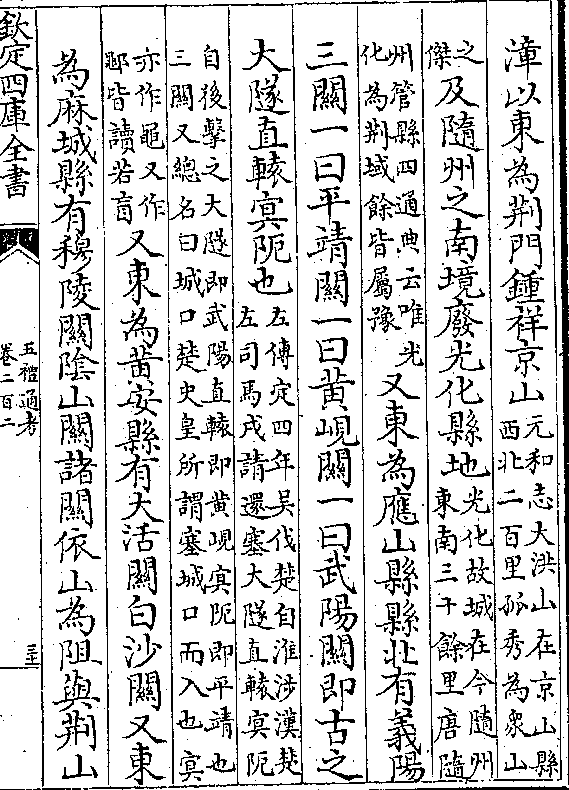 漳以東為荆門鍾祥京山元和志大洪山在京山縣
西北二百里孤秀為衆山
之
傑及隨州之南境廢光化縣地光化故城在今隨州
東南三十餘里唐隨
州管縣四通典云唯光
化為荆域餘皆屬豫又東為應山縣縣北有義陽
三關一曰平靖關一曰黄峴關一曰武陽關即古之
大隧直轅㝠阨也左傳定四年吳伐楚自淮涉漢楚
左司馬戌請還塞大隧直轅㝠阨
自後擊之大隧即武陽直轅即黄峴㝠阨即平靖也
三關又總名曰城口楚史皇所謂塞城口而入也㝠
亦作黽又作
鄳皆讀若盲又東為黄安縣有大活關白沙關又東
為麻城縣有穆陵關陰山關諸關依山為阻與荆山
欽定四庫全書
五禮通考
卷二百二
三十